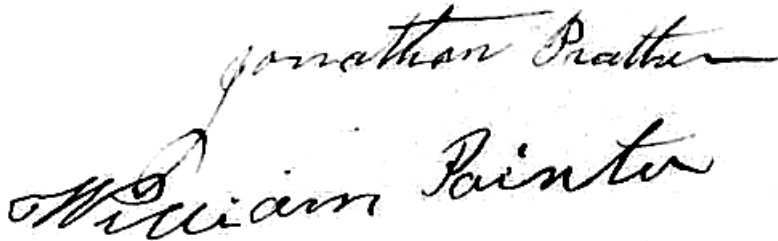 Jonathan Prather
William Painter